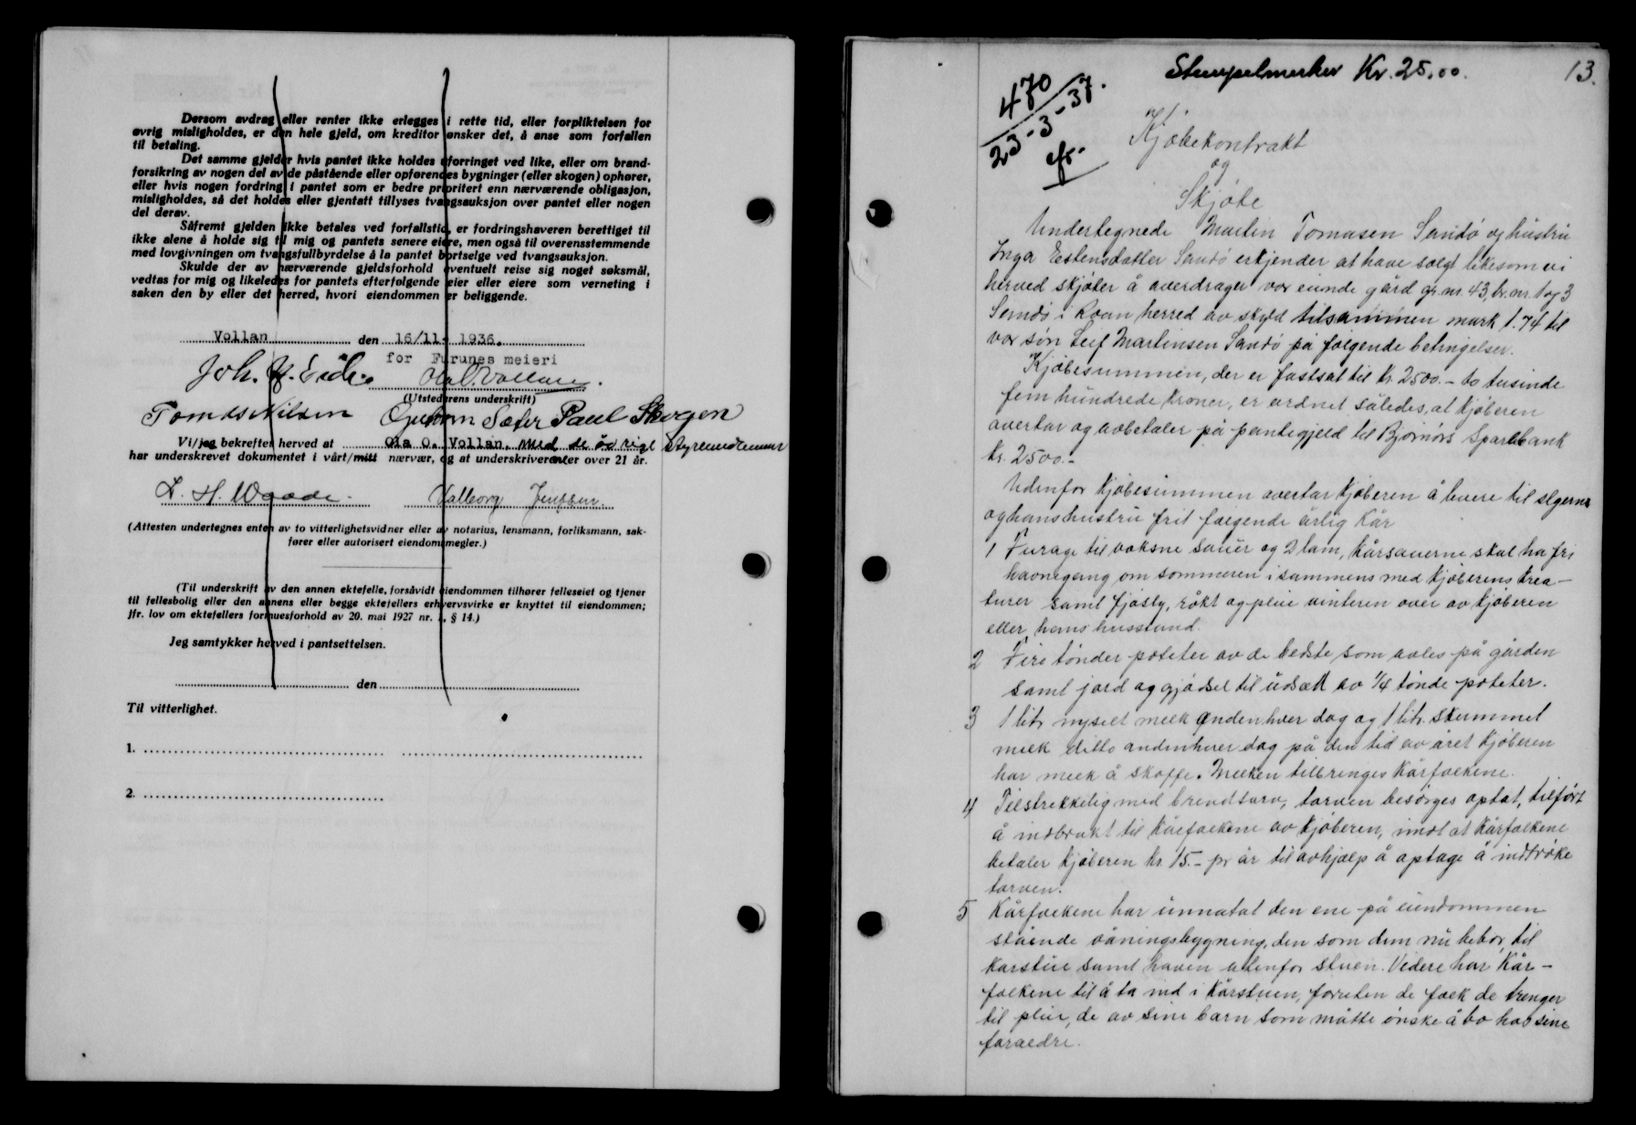 Dersom avdrag eller renter ikke erlegges i rette tid, eller forpliktelsen for
øvrig misligholdes, er den hele gjeld, om kreditor ønsker det, å anse som forfallen
til betaling.
Det samme gjelder hvis pantet ikke holdes uforringet ved like, eller om brand-
forsikring av nogen del av de påstående eller opførendes bygninger (eller skogen) ophører,
eller hvis nogen fordring i pantet som er bedre prioritert enn nærværende obligasjon,
misligholdes, så det holdes eller gjentatt tillyses tvangsauksjon over pantet eller nogen
del derav.
Såfremt gjelden ikke betales ved forfallstid, er fordringshaveren berettiget til
ikke alene å holde sig til mig og pantets senere eiere, men også til overensstemmende
med lovgivningen om tvangsfullbyrdelse å la pantet bortselge ved tvangsauksjon.
Skulde der av nærværende gjeldsforhold eventuelt reise sig noget søksmål,
vedtas for mig og likeledes for pantets efterfølgende eier eller eiere som verneting i
saken den by eller det herred, hvori eiendommen er beliggende.
Vollan den 16/11- 1936.
for Furunes meieri
Joh. H. Eide. Ola O. Vollan.
(Utstederens underskrift)
Tomas Nilsen Gjeborn Sæter Paul Skogen
Vi/jeg bekrefter herved at Ola O. Vollan, med de øvrige styremedlemmer
har underskrevet dokumentet i vårt/mitt nærvær, og at underskriverne er over 21 år.
L. H. Waade. Valborg Jenssen.
(Attesten undertegnes enten av to vitterlighetsvidner eller av notarius, lensmann, forliksmann, sak-
fører eller autorisert eiendomsmegler.)
(Til underskrift av den annen ektefelle, forsåvidt eiendommen tilhører felleseiet og tjener
til fellesbolig eller den annens eller begge ektefellers erhvervsvirke er knyttet til eiendommen;
jfr. lov om ektefellers formuesforhold av 20. mai 1927 nr. 1, § 14.)
Jeg samtykker herved i pantsettelsen.
den
Til vitterlighet.
1.
2.
Stempelmerker Kr. 25,00. 13.
470
23-3-37.
Kjøbekontrakt
og
Skjøte
Undertegnede Martin Tomasen Sandø og hustru
Inga Estensdatter Sandø erkjender at have solgt likesom vi
herved skjøter å averdrager vor eiende gård gr. nr. 43, br. nr. 1 og 3
Sandø i Roan herred av skyld tilsammen mark 1.74 til
vor søn Leif Martinsen Sandø på følgende betingelser.
Kjøbesummen, der er fastsat til kr. 2500.- to tusinde
fem hundrede kroner, er ordnet således, at kjøberen
avertar og avbetaler på pantegjeld til Bjørnørs Sparebank
kr. 2500.-
Udenfor kjøbesummen avertar kjøberen å levere til selgerne
og hans hustru frit følgende årlig kår
1 Furage til voksne sauer og 2 lam, kårsauerne skal ha fri
havnegang om sommeren i sammens med kjøberens krea-
turer samt fjøsly, røkt og pleie vinteren over av kjøberen
eller hans husstand.
2 Fire tønder poteter av de bedste som avles på gården
samt jord og gjødsel til udsæt av 1/4 tønde poteter.
3 1 litr. nysilt melk andenhver dag og 1 litr. skummet
melk ditto andenhver dag på den tid av året kjøberen
har melk å skaffe. Melken tilbringes kårfolkene.
4 Tilstrekkelig med brendtorv, torven besørges optat, tilført
å indbrakt til kårfolkene av kjøberen, imot at kårfolkene
betaler kjøberen kr. 15.- pr år til avhjælp å optage å indbrøke
torven.
5 Kårfolkene har unnatat den ene på eiendommen
stående våningsbygning, den som dem nu bebor, til
karstue samt haven utenfor stuen. Videre har kår-
folkene til å ta ind i kårstuen, foruten de folk de trenger
til pleie, de av sine barn som måtte ønske å bo hos sine
foraeldre.